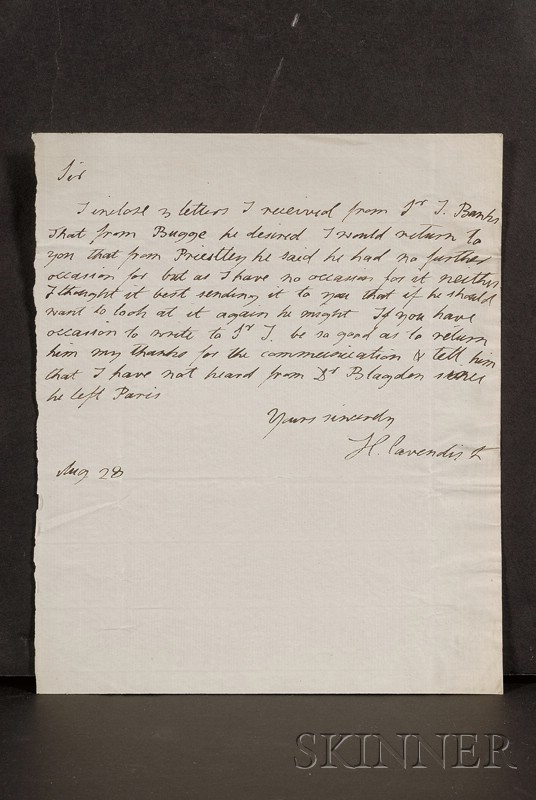 Sir
I inclose 2 letters I received from Sr J. Banks
that from Bugge he desired I would return to
you that from Priestley he said he had no further
occasion for but as I have no occasion for it neither
I thought it best sending it to you that if he should
want to look at it again he might If you have
occasion to write to Sr J. be so good as to return
him my thanks for the communication & tell him
that I have not heard from Dr Blagden since
he left Paris
Yours sincerely
H. Cavendish
Aug 28
SKINNER